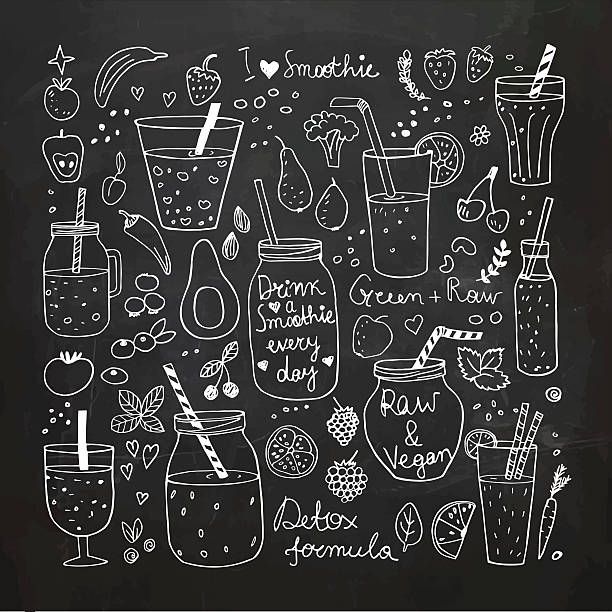 I ♥ Smoothie
Drink
a
Smoothie
every
day
Green + Raw
Raw
&
Vegan
Detox
formula